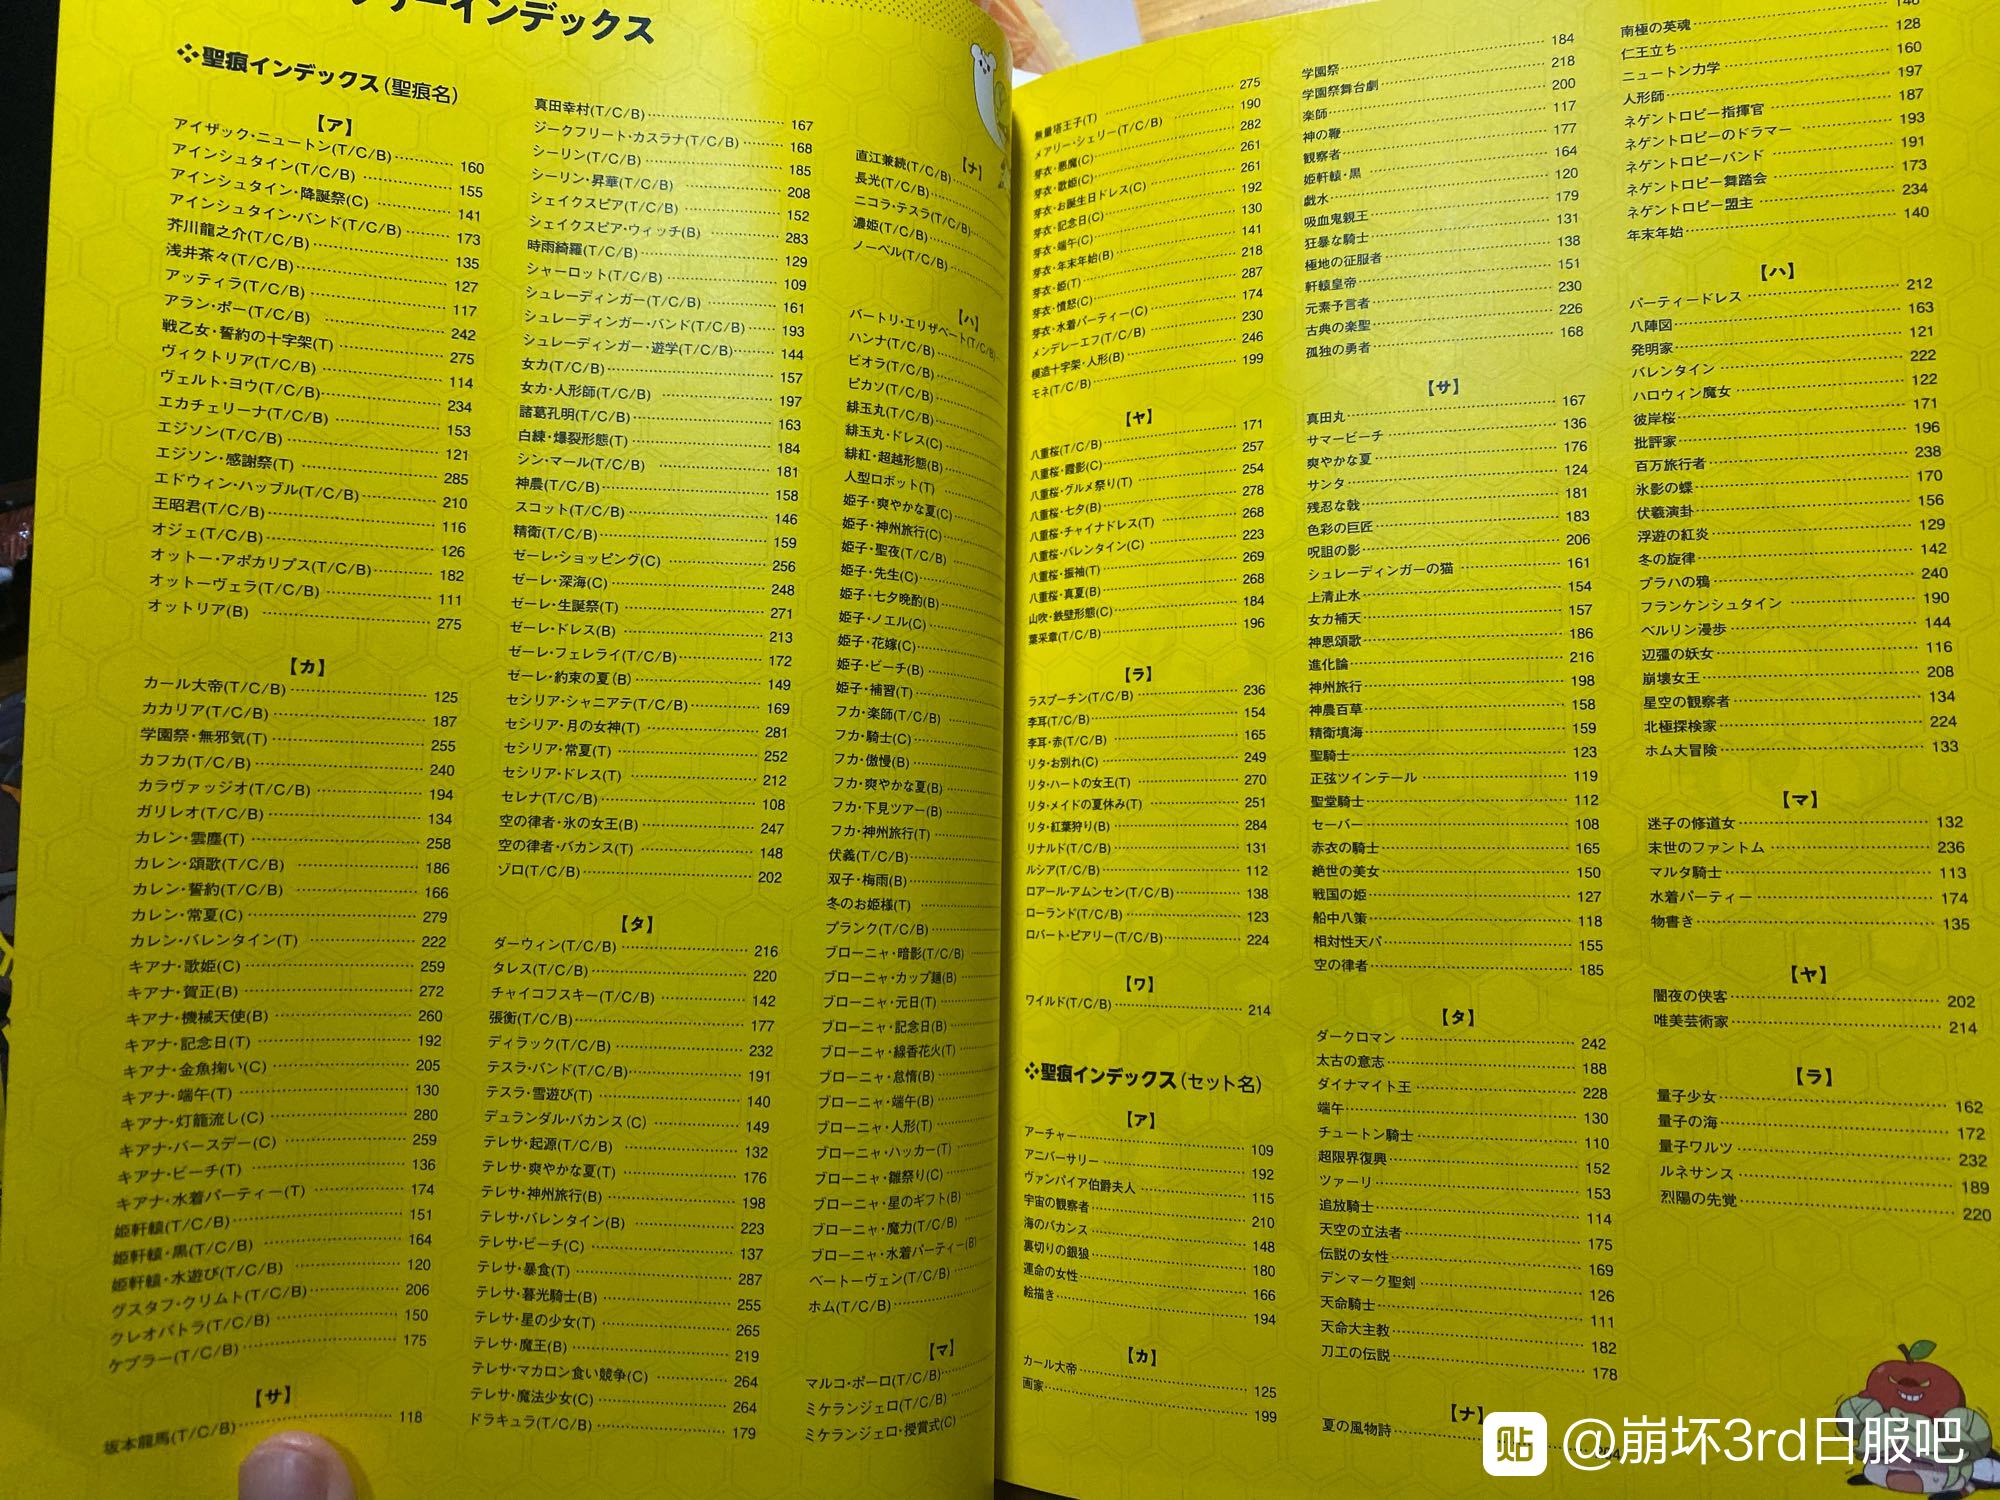 インデックス
聖痕インデックス(聖痕名)
【ア】
アイザック・ニュートン(T/C/B) 160
アインシュタイン(T/C/B) 155
アインシュタイン・降誕祭(C) 141
アインシュタイン・バンド(T/C/B) 173
芥川龍之介(T/C/B) 135
浅井茶々(T/C/B) 127
アッティラ(T/C/B) 117
アラン・ポー(T/C/B) 242
戦乙女・誓約の十字架(T) 275
ヴィクトリア(T/C/B) 114
ヴェルト・ヨウ(T/C/B) 234
エカチェリーナ(T/C/B) 153
エジソン(T/C/B) 121
エジソン・感謝祭(T) 285
エドウィン・ハッブル(T/C/B) 210
王昭君(T/C/B) 116
オジェ(T/C/B) 126
オットー・アポカリプス(T/C/B) 182
オットーヴェラ(T/C/B) 111
オットリア(B) 275
【カ】
カール大帝(T/C/B) 125
カカリア(T/C/B) 187
学園祭・無邪気(T) 255
カフカ(T/C/B) 240
カラヴァッジオ(T/C/B) 194
ガリレオ(T/C/B) 134
カレン・雲塵(T) 258
カレン・頌歌(T/C/B) 186
カレン・誓約(T/C/B) 166
カレン・常夏(C) 279
カレン・バレンタイン(T) 222
キアナ・歌姫(C) 259
キアナ・賀正(B) 272
キアナ・機械天使(B) 260
キアナ・記念日(T) 192
キアナ・金魚掬い(C) 205
キアナ・端午(T) 130
キアナ・灯籠流し(C) 280
キアナ・バースデー(C) 259
キアナ・ビーチ(T) 136
キアナ・水着パーティー(T) 174
姫軒轅(T/C/B) 151
姫軒轅・黒(T/C/B) 164
姫軒轅・水遊び(T/C/B) 120
グスタフ・クリムト(T/C/B) 206
クレオパトラ(T/C/B) 150
ケプラー(T/C/B) 175
【サ】
坂本龍馬(T/C/B) 118
真田幸村(T/C/B) 167
ジークフリート・カスラナ(T/C/B) 168
シーリン(T/C/B) 185
シーリン・昇華(T/C/B) 208
シェイクスピア(T/C/B) 152
シェイクスピア・ウィッチ(B) 283
時雨綺羅(T/C/B) 129
シャーロット(T/C/B) 109
シュレーディンガー(T/C/B) 161
シュレーディンガー・バンド(T/C/B) 193
シュレーディンガー・遊学(T/C/B) 144
女カ(T/C/B) 157
女カ・人形師(T/C/B) 197
諸葛孔明(T/C/B) 163
白練・爆裂形態(T) 184
シン・マール(T/C/B) 181
神農(T/C/B) 158
スコット(T/C/B) 146
精衛(T/C/B) 159
ゼーレ・ショッピング(C) 256
ゼーレ・深海(C) 248
ゼーレ・生誕祭(T) 271
ゼーレ・ドレス(B) 213
ゼーレ・フェレライ(T/C/B) 172
ゼーレ・約束の夏(B) 149
セシリア・シャニアテ(T/C/B) 169
セシリア・月の女神(T) 281
セシリア・常夏(T) 252
セシリア・ドレス(T) 212
セレナ(T/C/B) 108
空の律者・氷の女王(B) 247
空の律者・バカンス(T) 148
ゾロ(T/C/B) 202
【タ】
ダーウィン(T/C/B) 216
タレス(T/C/B) 220
チャイコフスキー(T/C/B) 142
張衡(T/C/B) 177
ディラック(T/C/B) 232
テスラ・バンド(T/C/B) 191
テスラ・雪遊び(T) 140
デュランダル・バカンス(C) 149
テレサ・起源(T/C/B) 132
テレサ・爽やかな夏(T) 176
テレサ・神州旅行(B) 198
テレサ・バレンタイン(B) 223
テレサ・ビーチ(C) 137
テレサ・暴食(T) 287
テレサ・暮光騎士(B) 255
テレサ・星の少女(T) 265
テレサ・魔王(B) 219
テレサ・マカロン食い競争(C) 264
テレサ・魔法少女(C) 264
ドラキュラ(T/C/B) 179
【ナ】
直江兼続(T/C/B)
長光(T/C/B)
ニコラ・テスラ(T/C/B)
濃姫(T/C/B)
ノーベル(T/C/B)
【ハ】
バートリ・エリザベート(T/C/B)
ハンナ(T/C/B)
ビオラ(T/C/B)
ピカソ(T/C/B)
緋玉丸(T/C/B)
緋玉丸・ドレス(C)
緋紅・超越形態(B)
人型ロボット(T)
姫子・爽やかな夏(C)
姫子・神州旅行(C)
姫子・聖夜(T/C/B)
姫子・先生(C)
姫子・七夕晩酌(B)
姫子・ノエル(C)
姫子・花嫁(C)
姫子・ビーチ(B)
姫子・補習(T)
フカ・楽師(T/C/B)
フカ・騎士(C)
フカ・傲慢(B)
フカ・爽やかな夏(B)
フカ・下見ツアー(B)
フカ・神州旅行(T)
伏義(T/C/B)
双子・梅雨(B)
冬のお姫様(T)
プランク(T/C/B)
ブローニャ・暗影(T/C/B)
ブローニャ・カップ麺(B)
ブローニャ・元日(T)
ブローニャ・記念日(B)
ブローニャ・線香花火(T)
ブローニャ・怠惰(B)
ブローニャ・端午(B)
ブローニャ・人形(T)
ブローニャ・ハッカー(T)
ブローニャ・雛祭り(C)
ブローニャ・星のギフト(B)
ブローニャ・魔力(T/C/B)
ブローニャ・水着パーティー(B)
ベートーヴェン(T/C/B)
ホム(T/C/B)
【マ】
マルコ・ポーロ(T/C/B)
ミケランジェロ(T/C/B)
ミケランジェロ・授賞式(C)
無量塔王子(T) 275
メアリー・シェリー(T/C/B) 190
芽衣・悪魔(C) 282
芽衣・歌姫(C) 261
芽衣・お誕生日ドレス(C) 261
芽衣・記念日(C) 192
芽衣・端午(C) 130
芽衣・年末年始(B) 141
芽衣・姫(T) 218
芽衣・憤怒(C) 287
芽衣・水着パーティー(C) 174
メンデレーエフ(T/C/B) 230
模造十字架・人形(B) 246
モネ(T/C/B) 199
【ヤ】
八重桜(T/C/B) 171
八重桜・霞影(C) 257
八重桜・グルメ祭り(T) 254
八重桜・七夕(B) 278
八重桜・チャイナドレス(T) 268
八重桜・バレンタイン(C) 223
八重桜・振袖(T) 269
八重桜・真夏(B) 268
山吹・鉄壁形態(C) 184
葉采章(T/C/B) 196
【ラ】
ラスプーチン(T/C/B) 236
李耳(T/C/B) 154
李耳・赤(T/C/B) 165
リタ・お別れ(C) 249
リタ・ハートの女王(T) 270
リタ・メイドの夏休み(T) 251
リタ・紅葉狩り(B) 284
リナルド(T/C/B) 131
ルシア(T/C/B) 112
ロアール・アムンセン(T/C/B) 138
ローランド(T/C/B) 123
ロバート・ピアリー(T/C/B) 224
【ワ】
ワイルド(T/C/B) 214
聖痕インデックス(セット名)
【ア】
アーチャー 109
アニバーサリー 192
ヴァンパイア伯爵夫人 115
宇宙の観察者 210
海のバカンス 148
裏切りの銀狼 180
運命の女性 166
絵描き 194
【カ】
カール大帝 125
画家 199
学園祭 184
学園祭舞台劇 218
楽師 200
神の鞭 117
観察者 177
姫軒轅・黒 164
戯水 120
吸血鬼親王 179
狂暴な騎士 131
極地の征服者 138
軒轅皇帝 151
元素予言者 230
古典の楽聖 226
孤独の勇者 168
【サ】
真田丸 167
サマービーチ 136
爽やかな夏 176
サンタ 124
残忍な戟 181
色彩の巨匠 183
呪詛の影 206
シュレーディンガーの猫 161
上清止水 154
女カ補天 157
神恩頌歌 186
進化論 216
神州旅行 198
神農百草 158
精衛填海 159
聖騎士 123
正弦ツインテール 119
聖堂騎士 112
セーバー 108
赤衣の騎士 165
絶世の美女 150
戦国の姫 127
船中八策 118
相対性天パ 155
空の律者 185
【タ】
ダークロマン 242
太古の意志 188
ダイナマイト王 228
端午 130
チュートン騎士 110
超限界復興 152
ツァーリ 153
追放騎士 114
天空の立法者 175
伝説の女性 169
デンマーク聖剣 126
天命騎士 111
天命大主教 182
刀工の伝説 178
【ナ】
夏の風物詩
南極の英魂 146
仁王立ち 128
ニュートン力学 160
人形師 197
ネゲントロピー指揮官 187
ネゲントロピーのドラマー 193
ネゲントロピーバンド 191
ネゲントロピー舞踏会 173
ネゲントロピー盟主 234
年末年始 140
【ハ】
パーティードレス 212
八陣図 163
発明家 121
バレンタイン 222
ハロウィン魔女 122
彼岸桜 171
批評家 196
百万旅行者 238
氷影の蝶 170
伏羲演卦 156
浮遊の紅炎 129
冬の旋律 142
プラハの鴉 240
フランケンシュタイン 190
ベルリン漫歩 144
辺彊の妖女 116
崩壊女王 208
星空の観察者 134
北極探検家 224
ホム大冒険 133
【マ】
迷子の修道女 132
末世のファントム 236
マルタ騎士 113
水着パーティー 174
物書き 135
【ヤ】
闇夜の侠客 202
唯美芸術家 214
【ラ】
量子少女 162
量子の海 172
量子ワルツ 232
ルネサンス 189
烈陽の先覚 220
贴 @崩坏3rd日服吧